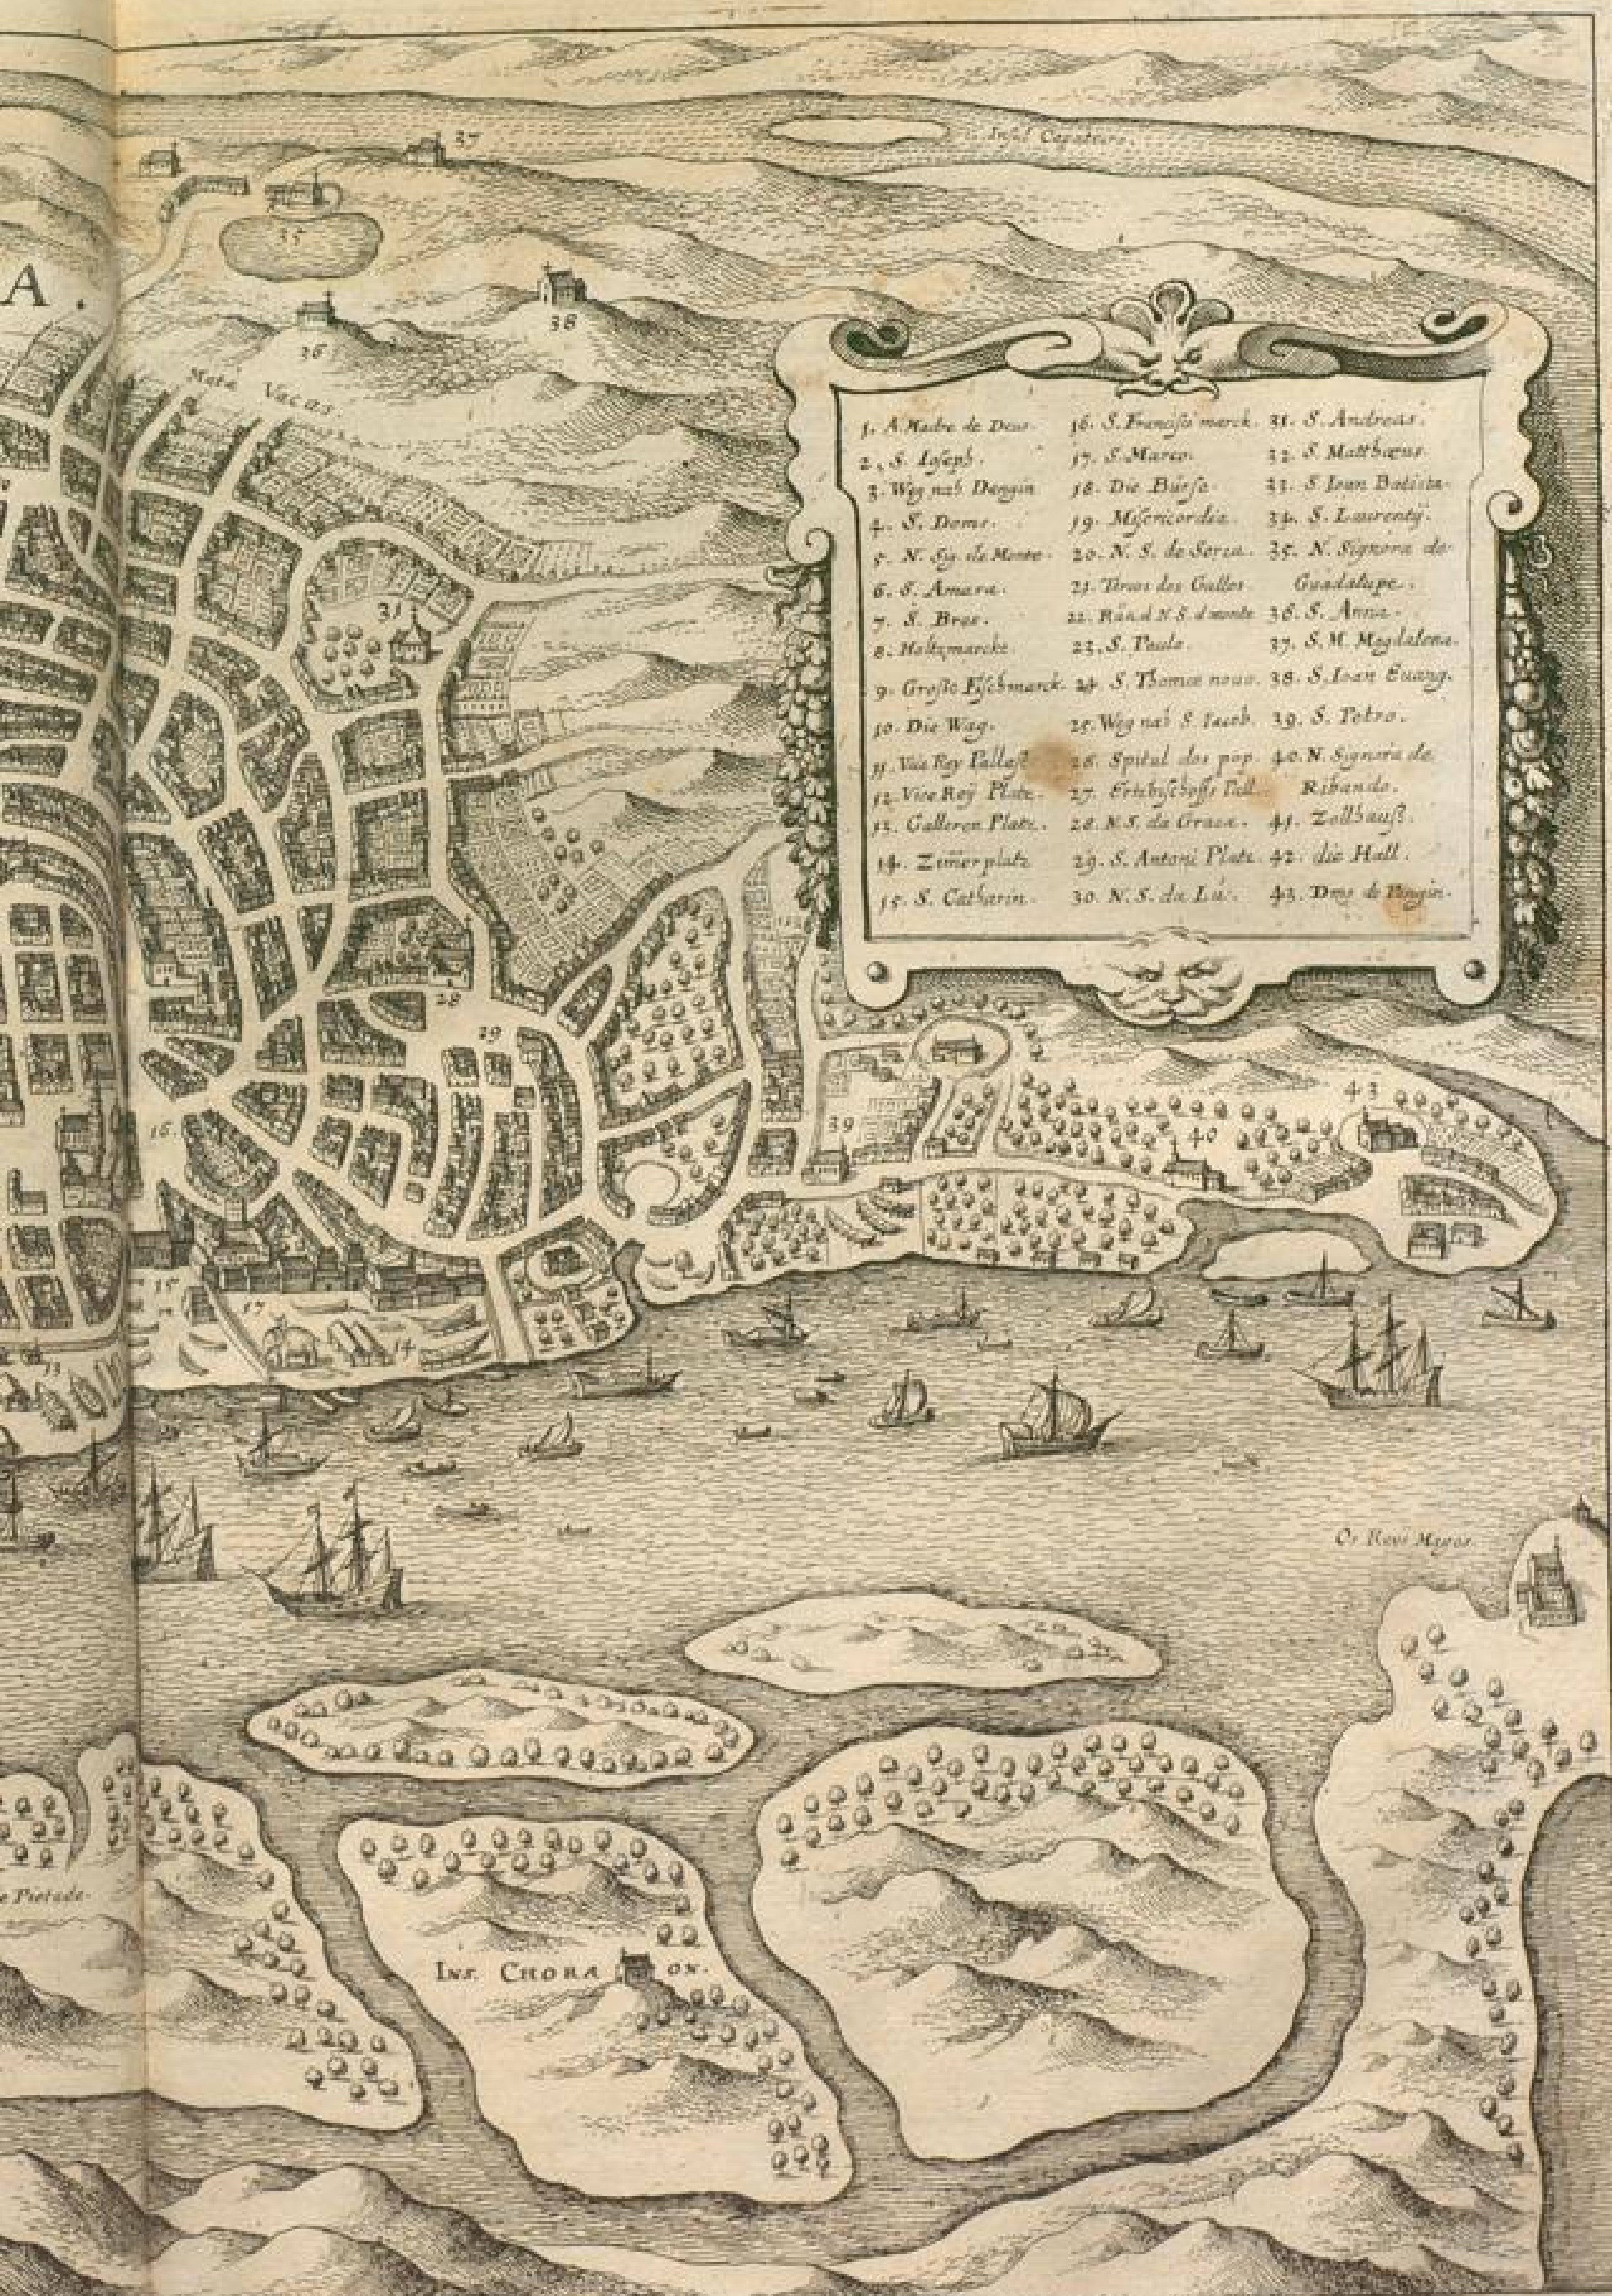 Insul Capatture.
37
35
A.
38
36
Mata Vacas.
1. A Madre de Deus.
2. S. Ioseph.
3. Weg nah Daugin
4. S. Dome.
5. N. Sig. de Monte.
6. S. Amara.
7. S. Bras.
8. Holtzmarckt.
9. Große Fischmarck.
10. Die Wag.
11. Vice Rey Pallast
12. Vice Reÿ Platz.
13. Galleren Platz.
14. Zimerplatz
15. S. Catharin.
16. S. Francisci marck.
17. S. Marco.
18. Die Bürse.
19. Misericordia.
20. N. S. de Serra.
21. Terros dos Gallos
22. Rua.d N.S. d monte
23. S. Paulo.
24. S. Thomæ nouo.
25. Weg nah S. Iacob.
26. Spital dos pop.
27. Ertzbischoffs Pall.
28. N.S. da Graza.
29. S. Antoni Platz.
30. N. S. da Lú.
31. S. Andreas.
32. S. Matthæus.
33. S. Ioan Batista.
34. S. Laurentÿ.
35. N. Signora de
Guadalupe.
36. S. Anna.
37. S. M. Magdalena.
38. S. Ioan Euang.
39. S. Petro.
40. N. Signora de
Ribando.
41. Zollhauß.
42. die Hall.
43. Dms de
31
28
29
43
39
40
16.
15
17
14
13
Os Reyi Magos.
e Pietade.
INS. CHORA ON.